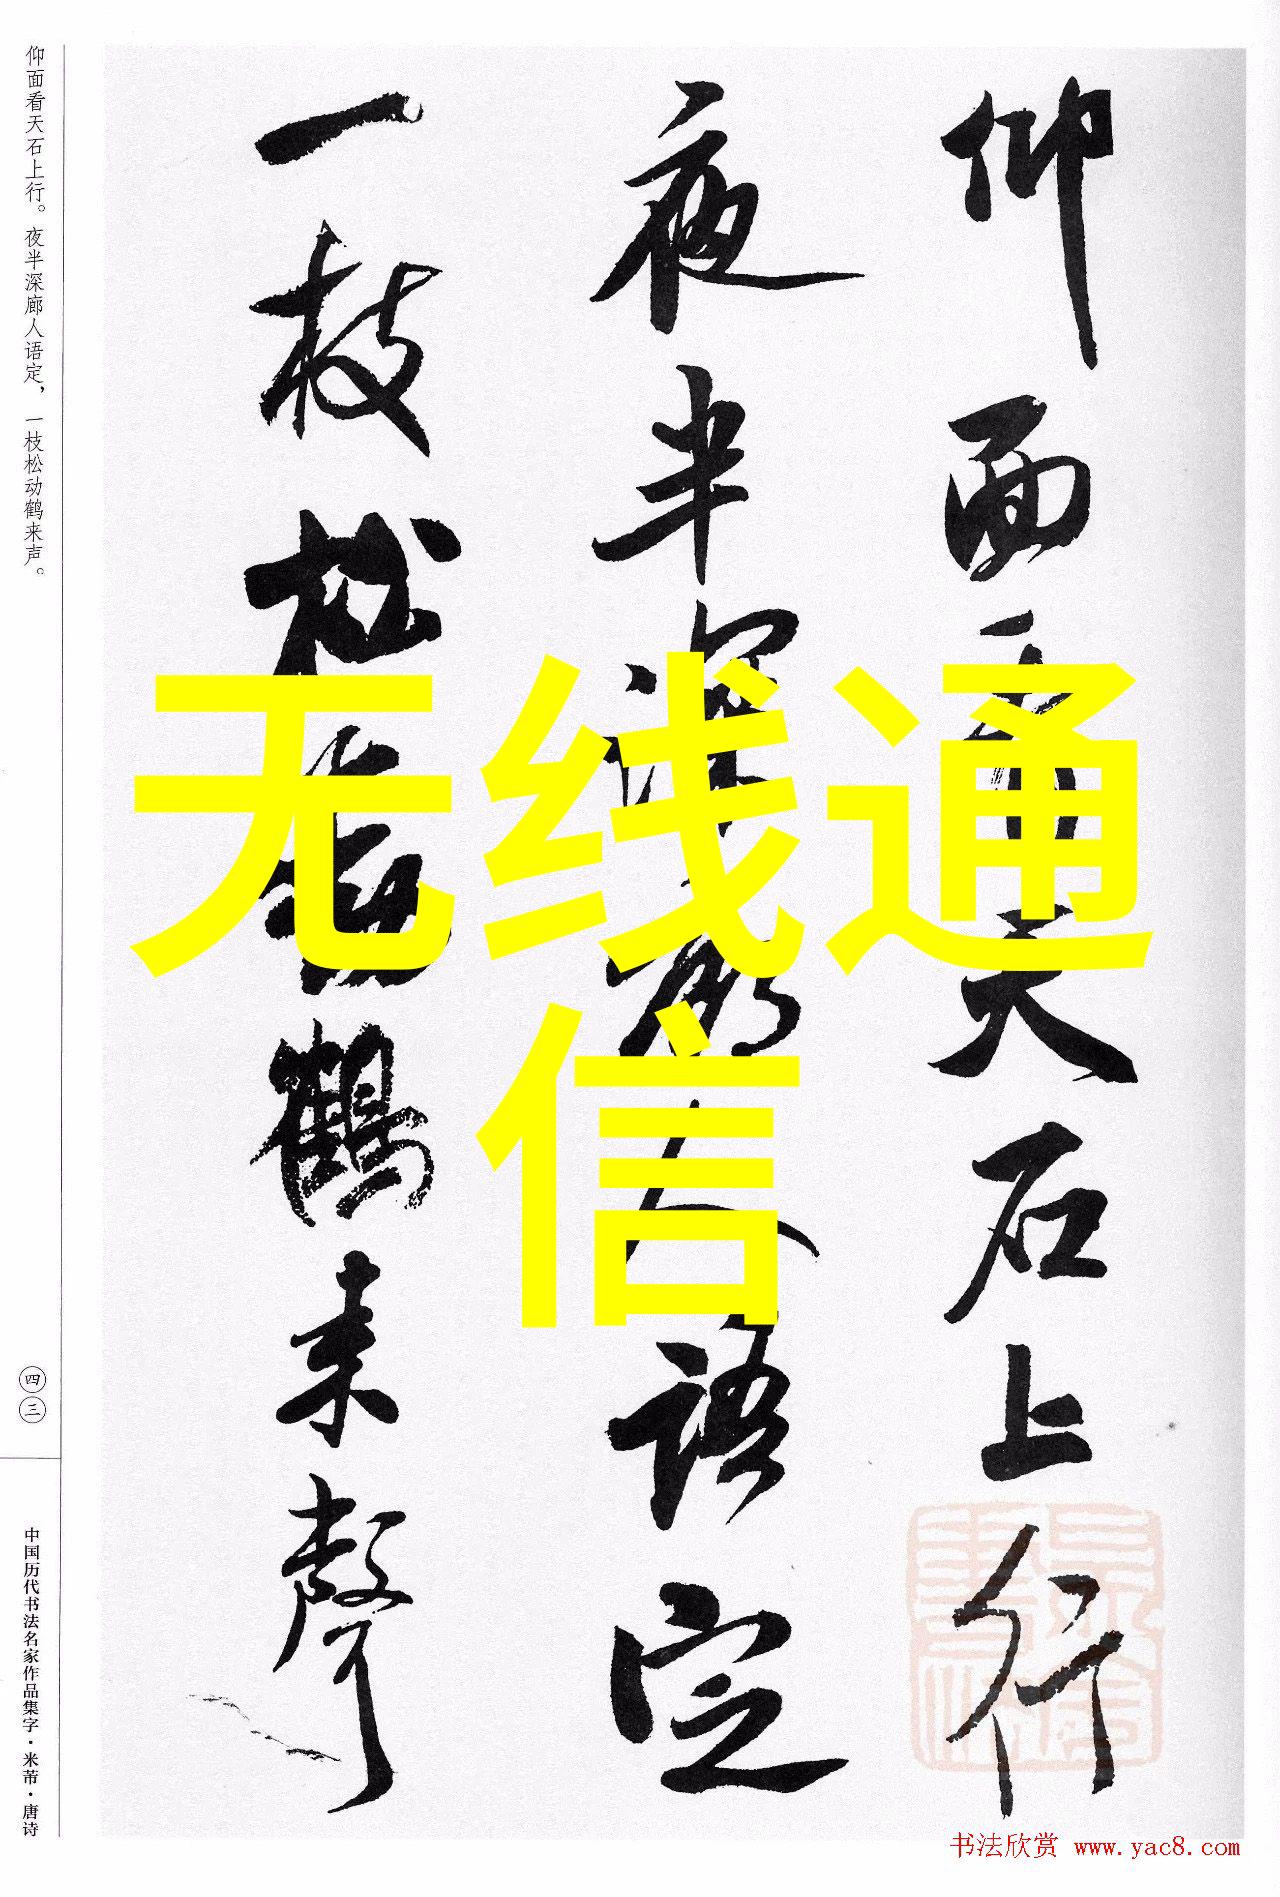 仰面看天石上行
夜半深廊人语定
一枝松动鹤来聲
仰面看天石上行。夜半深廊人语定，一枝松动鹤来声。
四三
中国历代书法名家作品集字·米芾·唐诗
无线通
信
书法欣赏 www.yac8.com